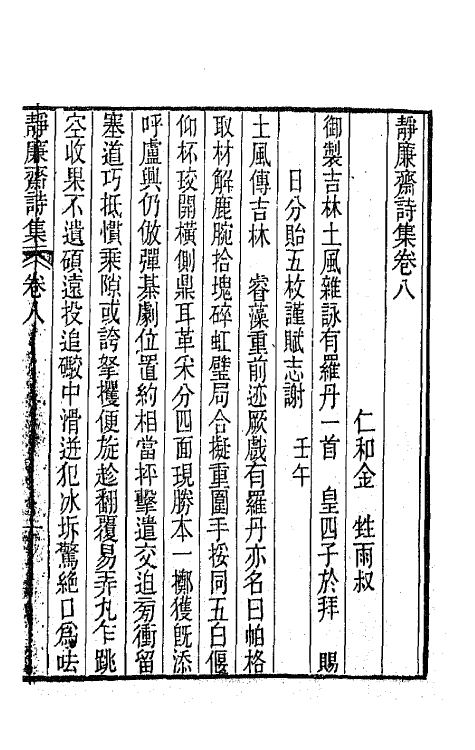 靜廉齋詩集卷八
仁和金　甡雨叔
御製吉林土風雜詠有羅丹一首　皇四子於拜　賜
日分貽五枚謹賦志謝　壬午
土風傳吉林　睿藻重前迹厥戲有羅丹亦名曰帕格
取材解鹿腕拾塊碎虹璧局合擬重圍手挼同五白偃
仰杯珓開橫側鼎耳革采分四面現勝本一擲獲旣添
呼盧興仍倣彈棊劇位置約相當抨擊遣交迫旁衝留
塞道巧抵慣乘隙或誇拏攫便旋趁翻覆易弄丸乍跳
空收果不遺碩遠投追礮中滑迸犯冰坼驚絶口爲呿
靜廉齋詩集　卷八　一